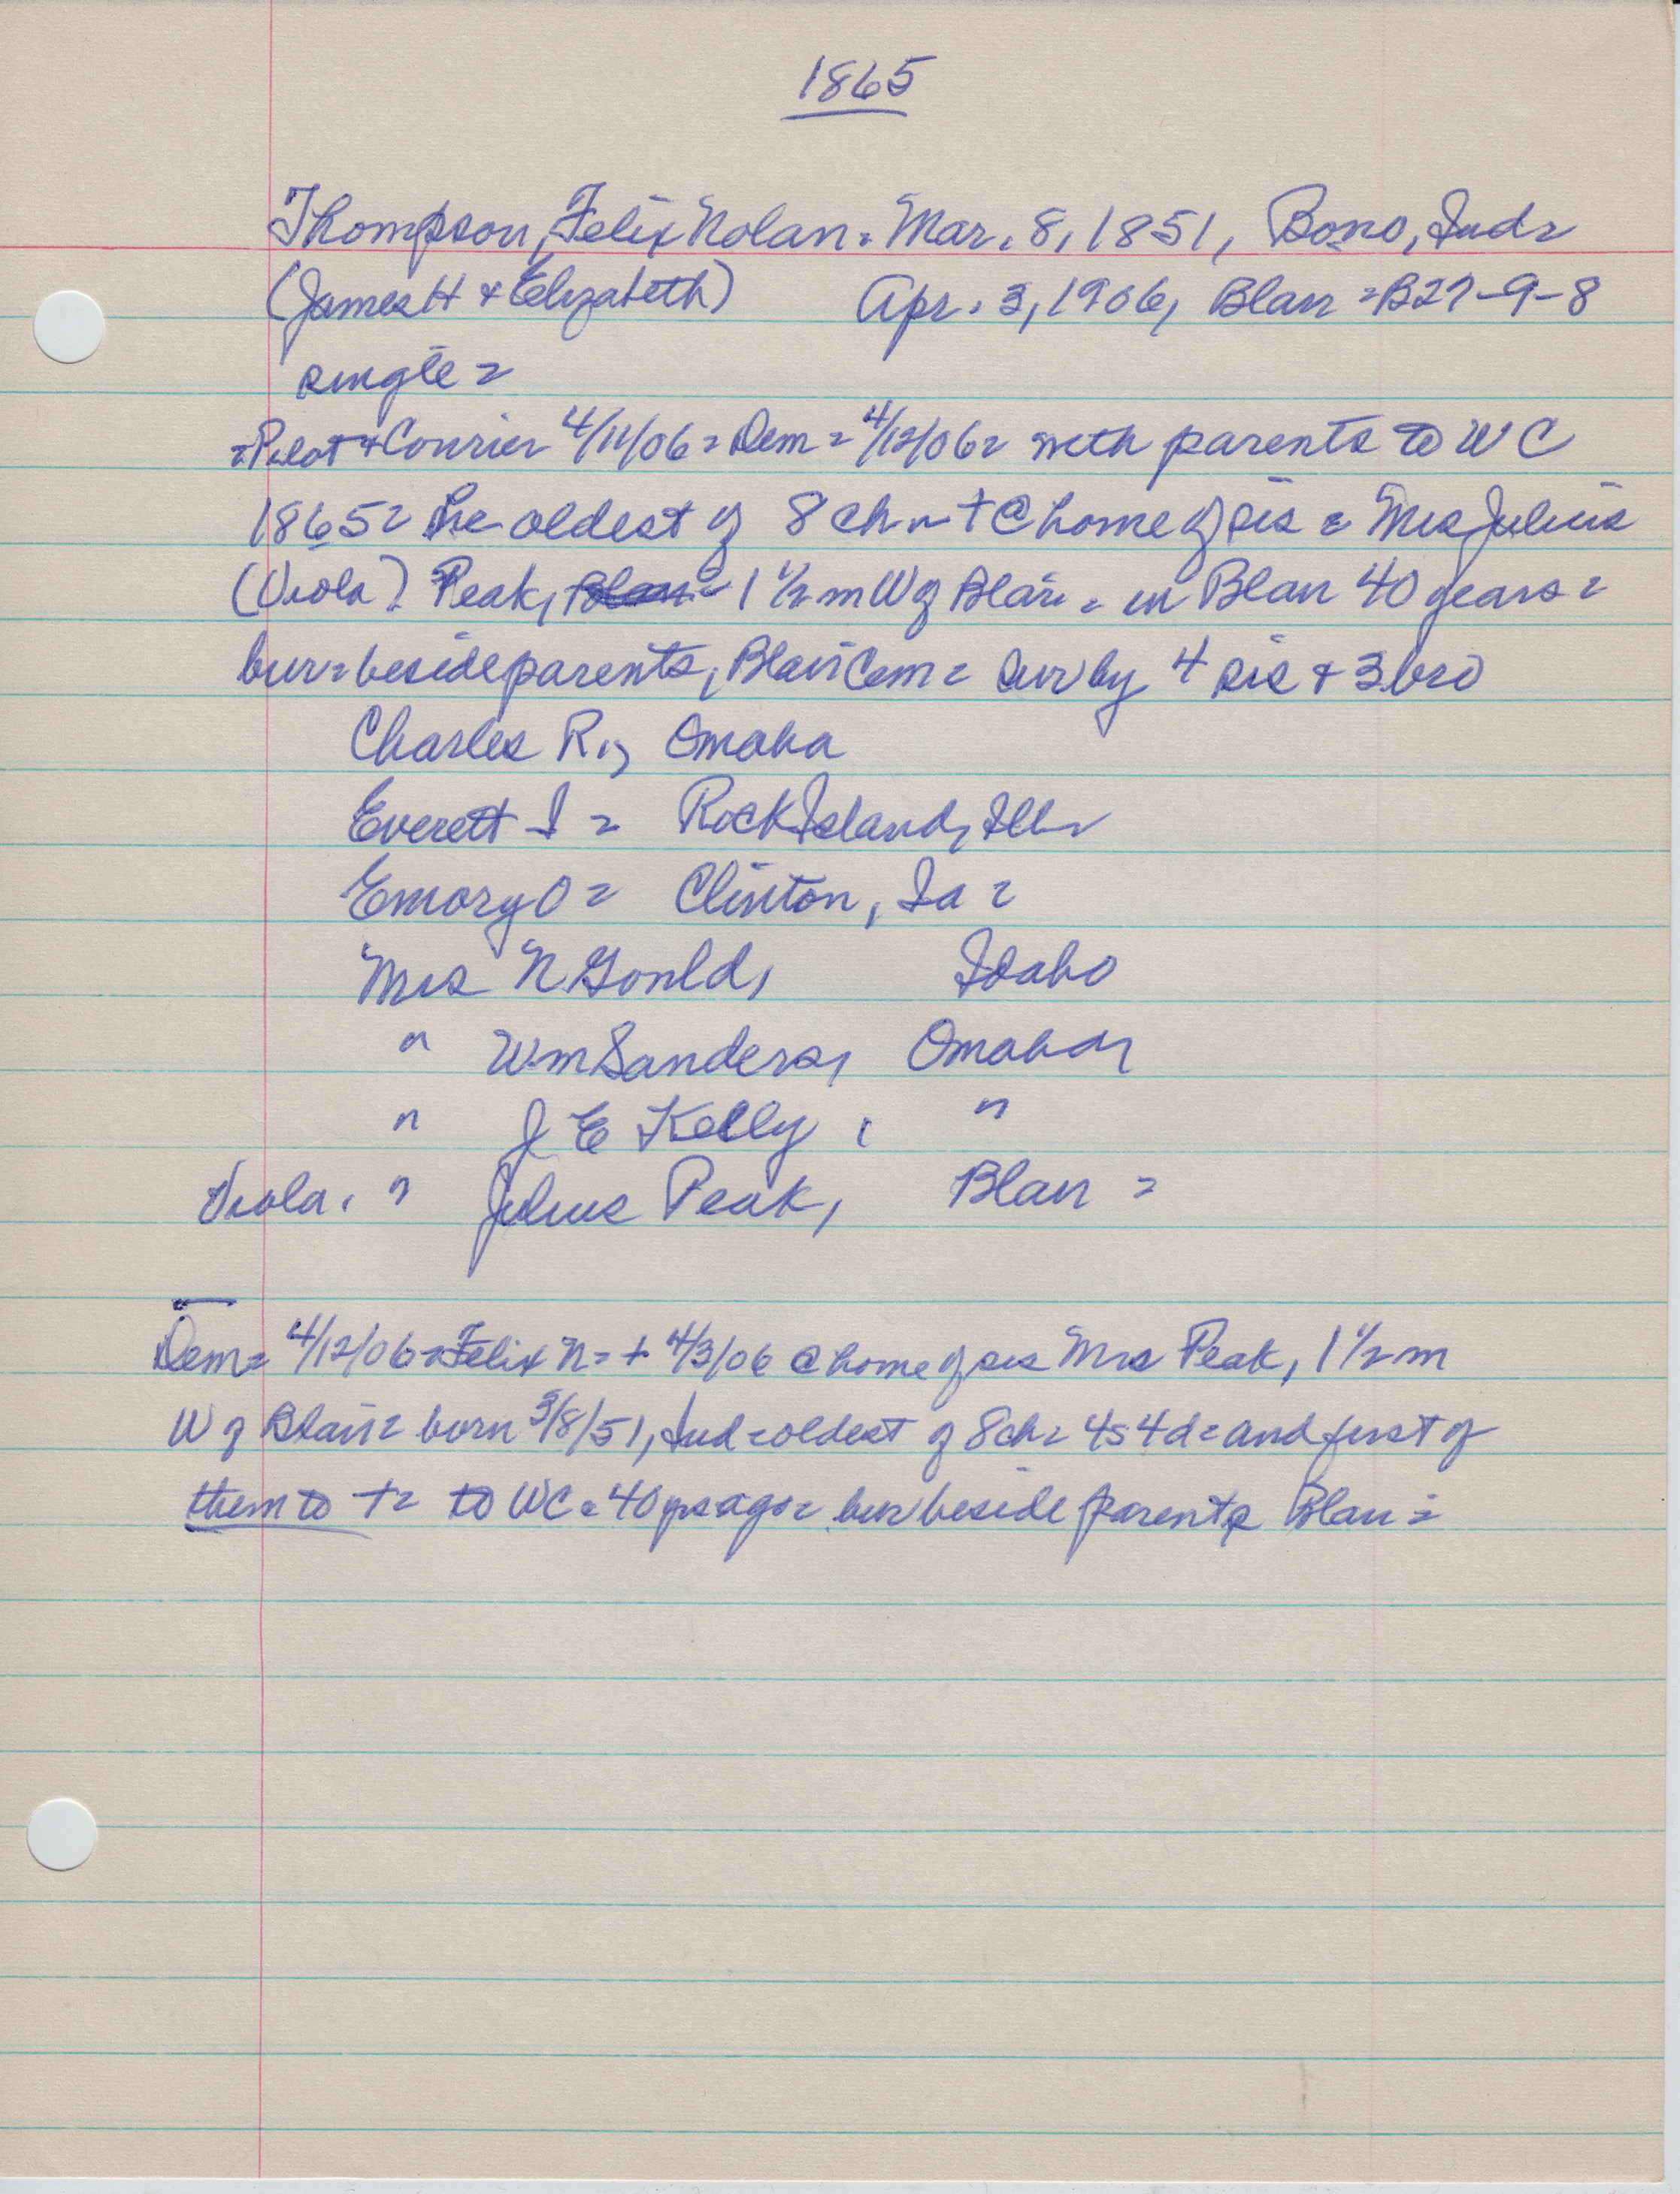 1865
Thompson, Felix Nolan = Mar. 8, 1851, Bono, Ind =
(James H & Elizabeth) Apr. 3, 1906, Blair = B27-9-8
single =
= Pilot & Courier 4/11/06 = Dem = 4/12/06 = with parents to WC
1865 = he oldest of 8 ch = + @ home of sis = Mrs Julius
(Viola) Peak, 1 1/2 m W of Blair = in Blair 40 years =
bur = beside parents, Blair Cem = sur by 4 sis & 3 bro
Charles R., Omaha
Everett I = Rock Island, Ill =
Emory O = Clinton, Ia =
Mrs N Gould, Idaho
" Wm Sanders, Omaha,
" J E Kelly, "
Viola, " Julius Peak, Blair =
Dem = 4/12/06 = Felix N = + 4/3/06 @ home of sis Mrs Peak, 1 1/2 m
W of Blair = born 3/8/51, Ind = oldest of 8 ch = 4s 4d = and first of
them to + = to WC = 40 yrs ago = bur beside parents Blair =